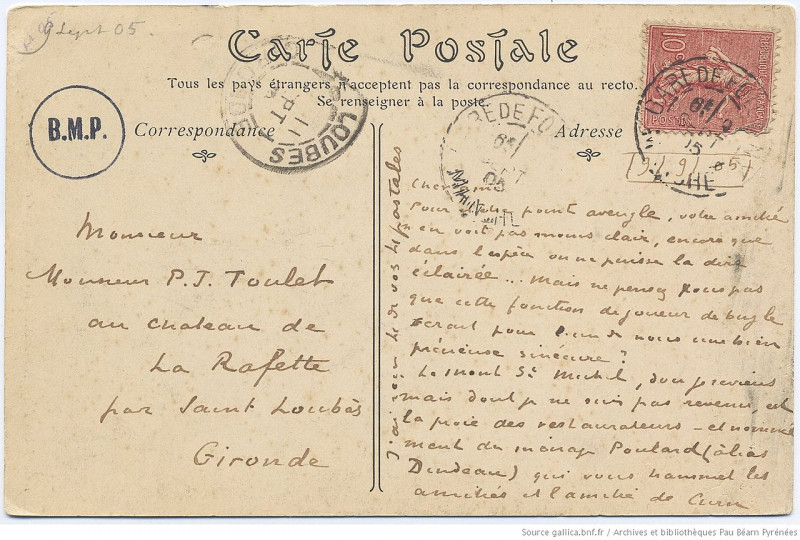 9 Sept 05.
Carte Postale
Tous les pays étrangers n'acceptent pas la correspondance au recto.
Se renseigner à la poste.
B.M.P.
Correspondance
Adresse
LOUBES
11
10
POSTES
9/9/05
Monsieur
Monsieur P. J. Toulet
au chateau de
La Rafette
par Saint Loubès
Gironde
Cher ami
Pour être point aveugle, votre amitié
n'en voit pas moins clair, encore que
dans l'espèce on ne puisse la dire
éclairée... Mais ne pensez vous pas
que cette fonction de joueur de bugle
serait pour l'un de nous une bien
précieuse sinécure?
Le Mont St Michel, d'où je reviens
mais dont je ne suis pas revenu, est
la proie des restaurateurs - et nommé
ment du ménage Poulard (alias
Dindeau) qui vous transmet les
amitiés et l'amitié de Curn
de vos postales
Source gallica.bnf.fr / Archives et bibliothèques Pau Béarn Pyrénées